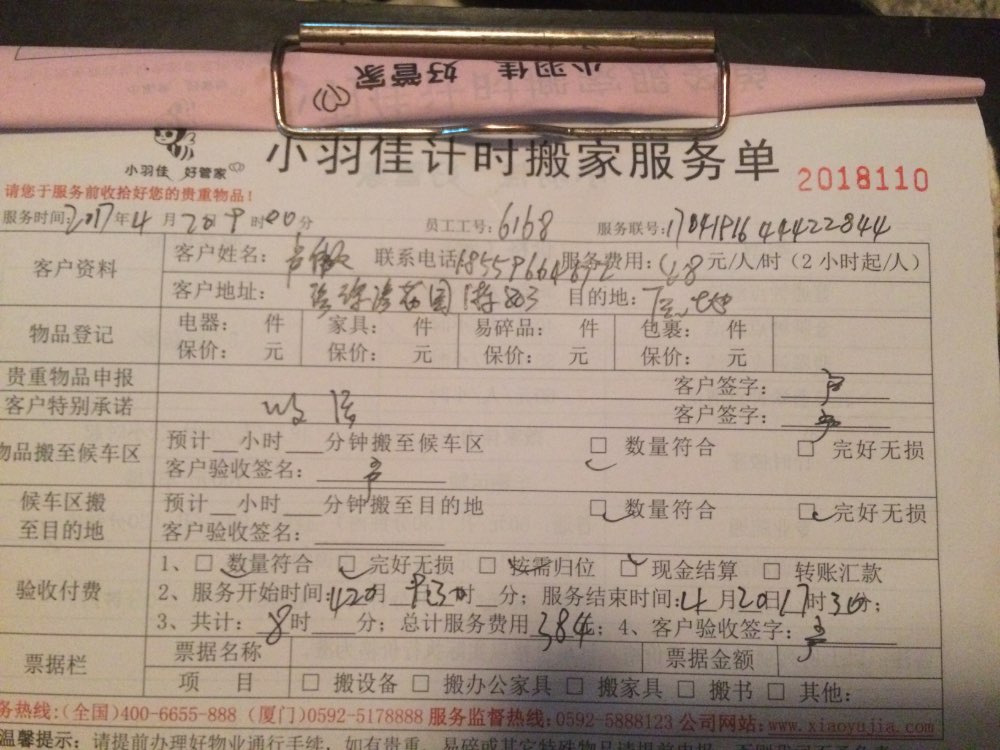 小羽佳 好管家
小羽佳 好管家
小羽佳计时搬家服务单
2018110
请您于服务前收拾好您的贵重物品！
服务时间:2017年4月20日9时00分 员工工号:6168 服务联号:
客户资料 客户姓名： 联系电话 服务费用： 元/人/时（2小时起/人）
客户地址： 目的地：
物品登记 电器： 件 家具： 件 易碎品： 件 包裹： 件
保价： 元 保价： 元 保价： 元 保价： 元
贵重物品申报 客户签字：
客户特别承诺 客户签字：
物品搬至候车区 预计__小时___分钟搬至候车区 □ 数量符合 □ 完好无损
客户验收签名：
候车区搬至目的地 预计__小时___分钟搬至目的地 □ 数量符合 □ 完好无损
客户验收签名：
验收付费 1、□ 数量符合 □ 完好无损 □ 按需归位 □ 现金结算 □ 转账汇款
2、服务开始时间: 月 时 分；服务结束时间:4月20日17时30分；
3、共计：8时 分；总计服务费用384；4、客户验收签字：
票据栏 票据名称 票据金额
项 目 □ 搬设备 □ 搬办公家具 □ 搬家具 □ 搬书 □ 其他：
务热线:(全国)400-6655-888 (厦门)0592-5178888 服务监督热线:0592-5888123 公司网站:www.xiaoyujia.com
温馨提示：请提前办理好物业通行手续，如有贵重、易碎或其它特殊物品请提前申报